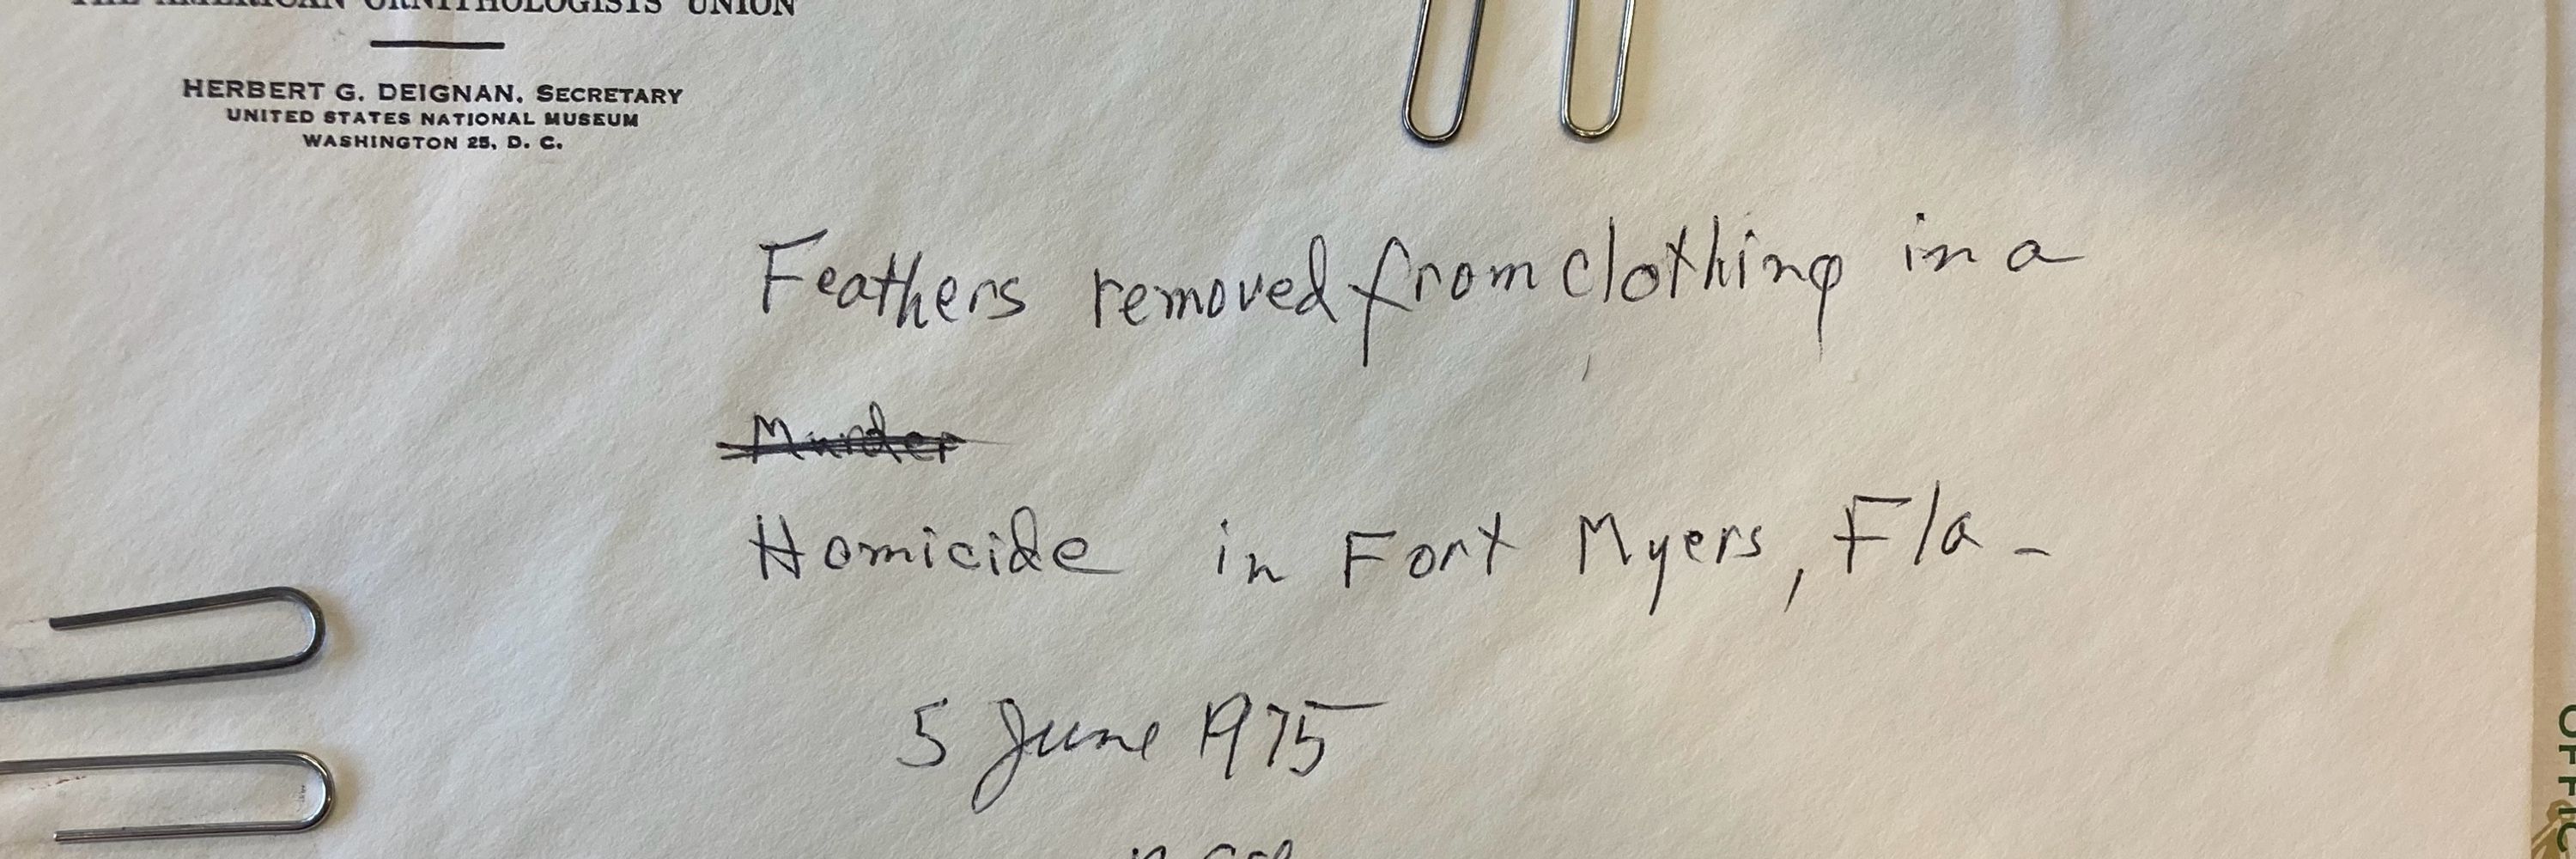 THE AMERICAN ORNITHOLOGISTS' UNION
HERBERT G. DEIGNAN, SECRETARY
UNITED STATES NATIONAL MUSEUM
WASHINGTON 25, D. C.
Feathers removed from clothing in a
Murder
Homicide in Fort Myers, Fla-
5 June 1975